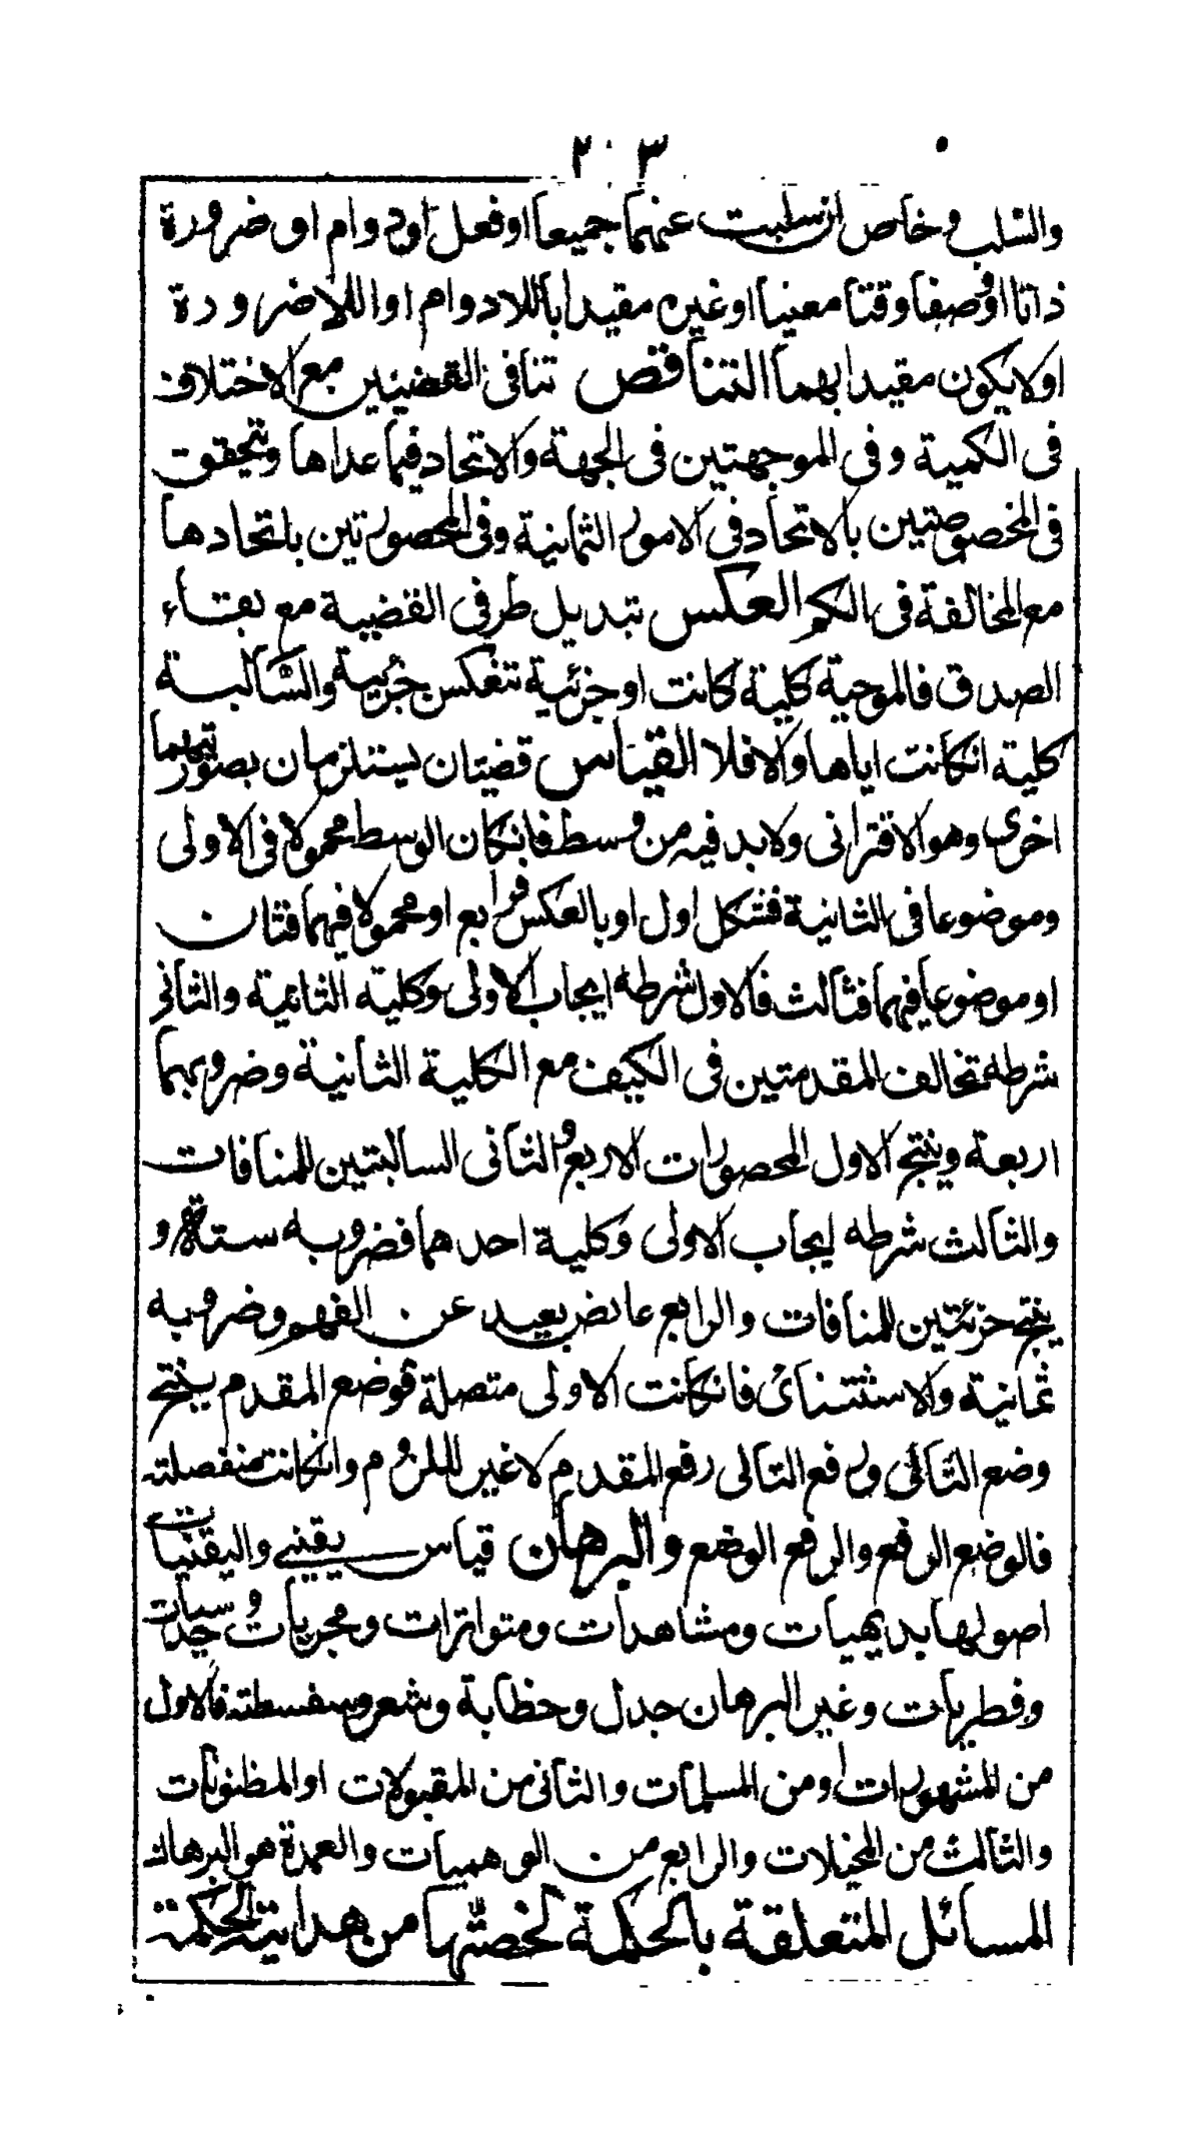 ٢٠٣
والسلب وخاص ان سلبت عنهما جميعا او فعل او دوام او ضرورة
ذاتا او وصفا وقتا معينا او غيره مقيدا باللادوام او اللاضرورة
او لا يكون مقيدا بهما التناقض تنافى القضيتين مع الاختلاف
فى الكمية وفى الموجهتين فى الجهة والاتحاد فيما عداها وتتحقق
فى المخصوصتين بالاتحاد فى الامور الثمانية وفى المحصورتين باتحادها
مع المخالفة فى الكم العكس تبديل طرفى القضية مع بقاء
الصدق فالموجبة كلية كانت او جزئية تنعكس جزئية والسالبة
كلية انكانت اياها والا فلا القياس قضيتان يستلزمان بصورتهما
اخرى وهو الاقترانى ولابد فيه من وسط فانكان الوسط محمولا فى الاولى
وموضوعا فى الثانية فشكل اول او بالعكس فرابع او محمولا فيهما فثان
او موضوعا فيهما فثالث فالاول شرطه ايجاب الاولى وكلية الثانية والثانى
شرطه تخالف المقدمتين فى الكيف مع الكلية الثانية وضروبهما
اربعة وينتج الاول المحصورات الاربع والثانى السالبتين للمنافات
والثالث شرطه ايجاب الاولى وكلية احدهما فضروبه ستة و
ينتج جزئيتين للمنافات والرابع غامض بعيد عن الفهم وضروبه
ثمانية والاستثنائى فانكانت الاولى متصلة فوضع المقدم ينتج
وضع التالى ورفع التالى رفع المقدم لا غير للزوم وانكانت منفصلته
فالوضع الرفع والرفع الوضع والبرهان قياس يقينى واليقنيات
اصولها بديهيات ومشاهدات ومتواترات ومجربات وحدسيات
وفطريات وغير البرهان جدل وخطابة وشعر وسفسطته فالاول
من المشهورات او من المسلمات والثانى من المقبولات او المظنونات
والثالث من المخيلات والرابع من الوهميات والعمدة هو البرهان
المسائل المتعلقة بالحكمة لخصتها من هداية الحكمة